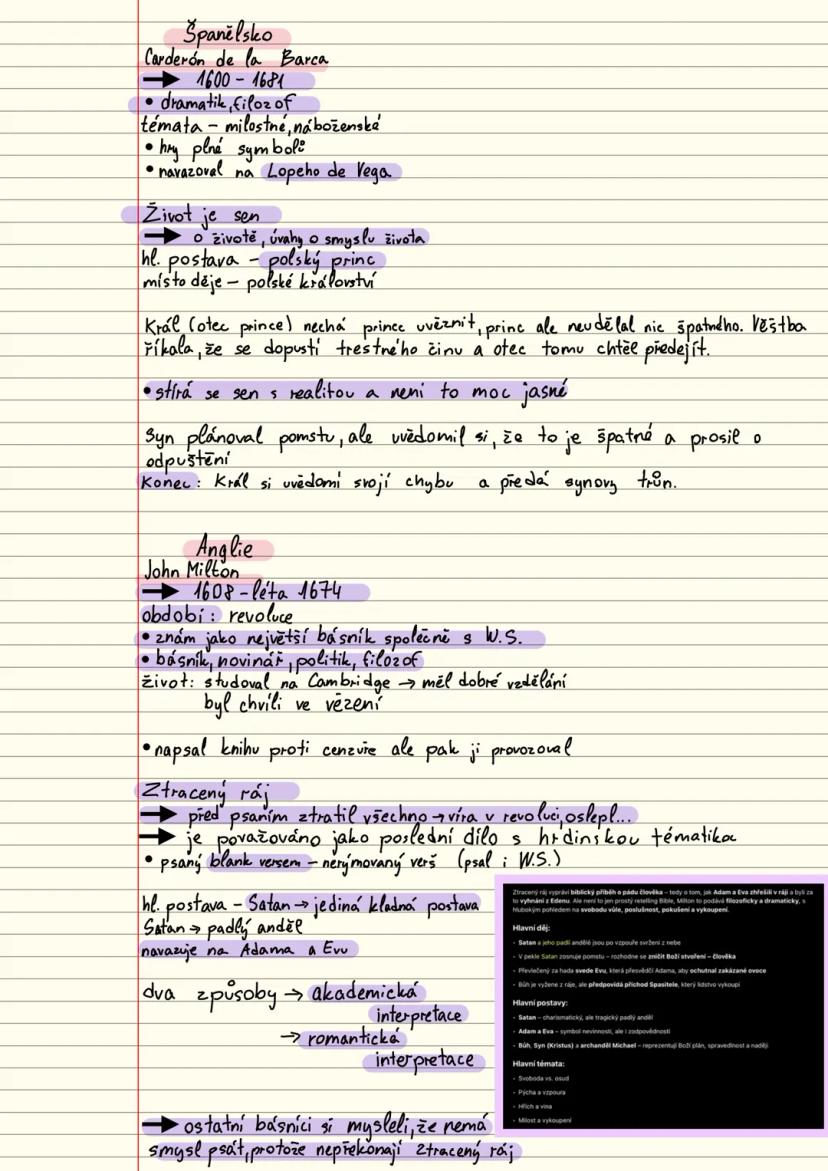 Španělsko
Carderón de la Barca
→ 1600 - 1681
• dramatik, filozof
témata - milostné, náboženské
• hry plné symbolů
• navazoval na Lopeho de Vega
Život je sen
→ o životě, úvahy o smyslu života
hl. postava - polský princ
místo děje - polské království
Král (otec prince) nechá prince uvěznit, princ ale neudělal nic špatného. Věštba
říkala, že se dopustí trestného činu a otec tomu chtěl předejít.
• stírá se sen s realitou a není to moc jasné
Syn plánoval pomstu, ale uvědomil si, že to je špatné a prosil o
odpuštění
Konec: Král si uvědomí svojí chybu a předá synovy trůn.
Anglie
John Milton
→ 1608 - léta 1674
období: revoluce
• znám jako největší básník společně s W.S.
• básník, novinář, politik, filozof
život: studoval na Cambridge → měl dobré vzdělání
byl chvíli ve vězení
• napsal knihu proti cenzuře ale pak ji provozoval
Ztracený ráj
→ před psaním ztratil všechno → víra v revoluci, oslepl...
→ je považováno jako poslední dílo s hrdinskou tématika
• psaný blank versem - nerýmovaný verš (psal i W.S.)
hl. postava - Satan → jediná kladná postava
Satan → padlý anděl
navazuje na Adama a Evu
dva způsoby → akademická
interpretace
→ romantická
interpretace
→ ostatní básníci si mysleli, že nemá
smysl psát, protože nepřekonají ztracený ráj
Ztracený ráj vypráví biblický příběh o pádu člověka – tedy o tom, jak Adam a Eva zhřešili v ráji a byli za
to vyhnáni z Edenu. Ale není to jen prostý retelling Bible, Milton to podává filozoficky a dramaticky, s
hlubokým pohledem na svobodu vůle, poslušnost, pokušení a vykoupení.
Hlavní děj:
• Satan a jeho padlí andělé jsou po vzpouře svrženi z nebe
• V pekle Satan zosnuje pomstu – rozhodne se zničit Boží stvoření – člověka
• Převlečený za hada svede Evu, která přesvědčí Adama, aby ochutnal zakázané ovoce
• Bůh je vyžene z ráje, ale předpovídá příchod Spasitele, který lidstvo vykoupí
Hlavní postavy:
• Satan – charismatický, ale tragický padlý anděl
• Adam a Eva – symbol nevinnosti, ale i zodpovědnosti
• Bůh, Syn (Kristus) a archanděl Michael – reprezentují Boží plán, spravedlnost a naději
Hlavní témata:
• Svoboda vs. osud
• Pýcha a vzpoura
• Hřích a vina
• Milost a vykoupení